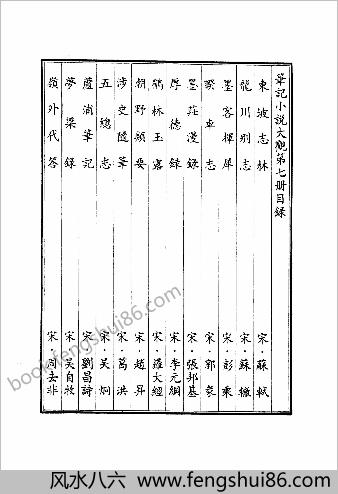 筆記小說大觀第七冊目錄
東坡志林 宋·蘇軾
龍川別志 宋·蘇轍
墨客揮犀 宋·彭乘
睽車志 宋·郭彖
墨莊漫錄 宋·張邦基
厚德錄 宋·李元綱
鶴林玉露 宋·羅大經
朝野類要 宋·趙昇
涉史隨筆 宋·葛洪
五總志 宋·吳炯
蘆浦筆記 宋·劉昌詩
夢粱錄 宋·吳自牧
嶺外代答 宋·周去非
book.fengshui86.com
风水八六 www.fengshui86.com